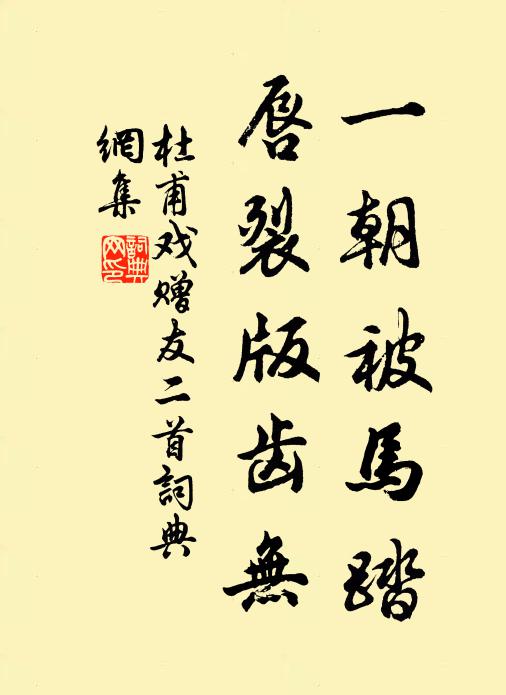 一朝被馬踏
唇裂版齿無
杜甫戏赠友二首詞典
網集
詞典網印